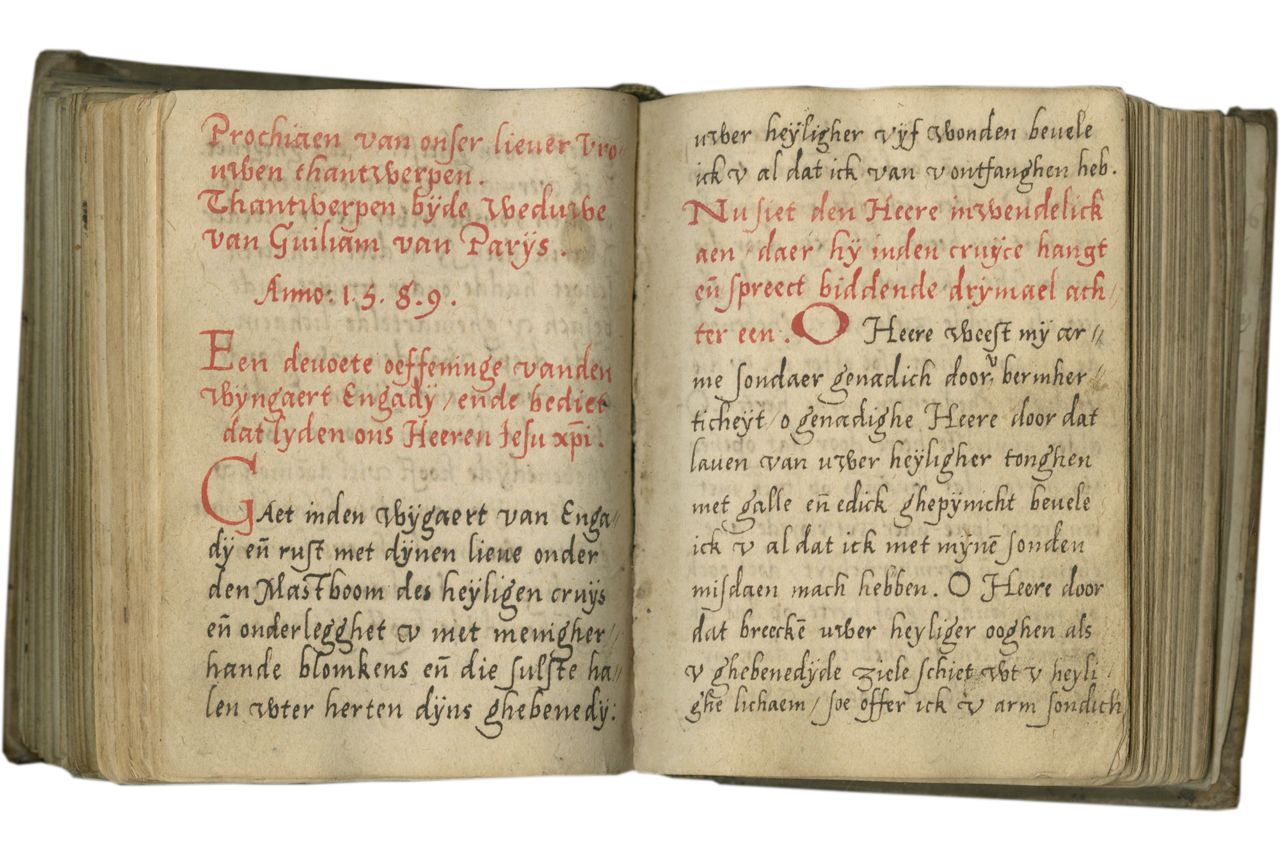 Prochiaen van onser lieuer vro⸗
uwen thantwerpen.
Thantwerpen bÿde weduwe
van Guiliam van Parÿs.
Anno. 1. 5. 8. 9.
Een deuoete oeffeninge vanden
wÿngaert Engadÿ / ende bediet
dat lyden ons Heeren Iesu xp̄i.
GAet inden wÿgaert van Enga⸗
dÿ eñ rust met dÿnen lieue onder
den Mastboom des heÿligen cruÿs
eñ onderlegghet v met menigher⸗
hande blomkens eñ die sulste ha⸗
len wter herten dÿns ghebenedÿ:
uwer heÿligher vÿf wonden beuele
ick v al dat ick van v ontfanghen heb.
Nu siet den Heere inwendelick
aen / daer hÿ inden cruÿce hangt
eñ spreect biddende drÿmael ach⸗
ter een. O Heere weest mÿ ar⸗
me sondaer genadich door v bermher⸗
ticheÿt / o genadighe Heere door dat
lauen van uwer heÿligher tonghen
met galle eñ edick ghepÿnicht beuele
ick v al dat ick met mÿnē sonden
misdaen mach hebben. O Heere door
dat breeckē uwer heyliger ooghen als
v ghebenedÿde ziele schiet wt v heyli⸗
ghe lichaem / soe offer ick v arm sondich